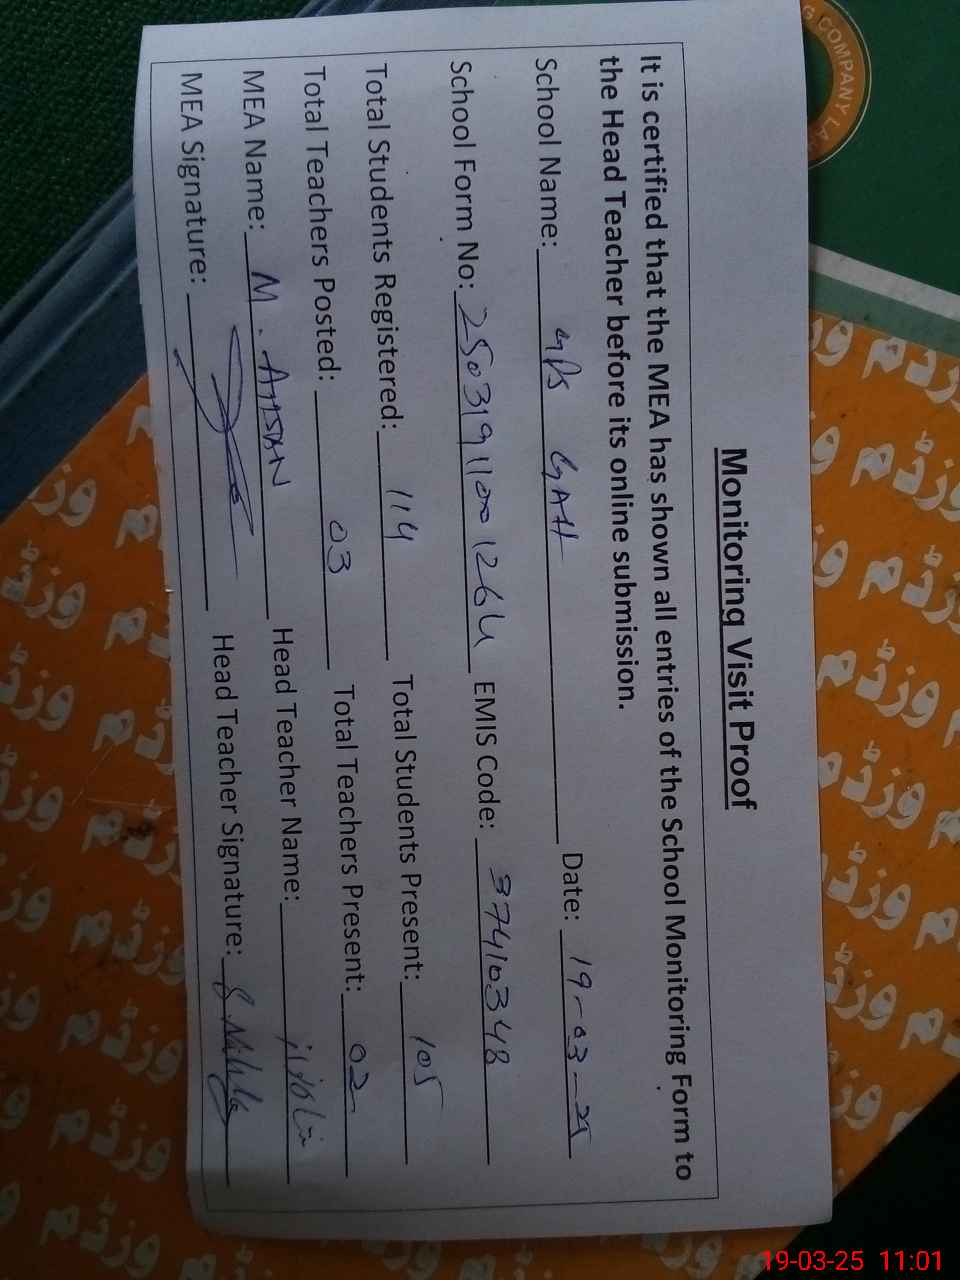 Monitoring Visit Proof
It is certified that the MEA has shown all entries of the School Monitoring Form to
the Head Teacher before its online submission.
School Name: GPS GAH Date: 19-03-25
School Form No: 25031911001264 EMIS Code: 37410348
Total Students Registered: 114 Total Students Present: 105
Total Teachers Posted: 03 Total Teachers Present: 02
MEA Name: M. AHSAN Head Teacher Name:
MEA Signature: Head Teacher Signature:
G COMPANY LA
وزڈم
19-03-25 11:01